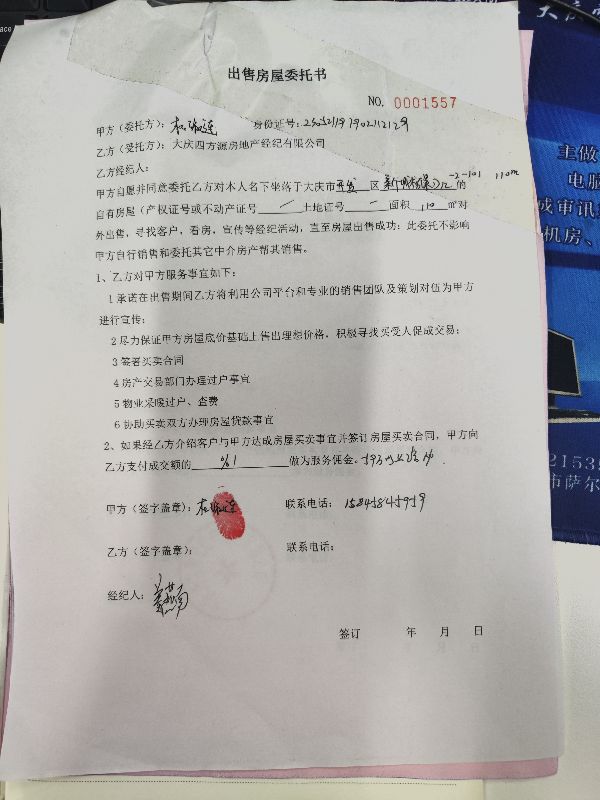 出售房屋委托书
NO. 0001557
甲方（委托方）： 身份证号：
乙方（受托方）：大庆四方源房地产经纪有限公司
乙方经纪人：
甲方自愿并同意委托乙方对本人名下坐落于大庆市 区 -2-101 110m 的
自有房屋（产权证号或不动产证号 / 土地证号 - 面积 110 ㎡对
外出售，寻找客户，看房，宣传等经纪活动，直至房屋出售成功；此委托不影响
甲方自行销售和委托其它中介房产帮其销售。
1、乙方对甲方服务事宜如下：
1承诺在出售期间乙方将利用公司平台和专业的销售团队及策划对值为甲方
进行宣传；
2尽力保证甲方房屋底价基础上售出理想价格，积极寻找买受人促成交易；
3签署买卖合同
4房产交易部门办理过户事宜
5物业采暖过户、查费
6协助买卖双方办理房屋贷款事宜
2、如果经乙方介绍客户与甲方达成房屋买卖事宜并签订房屋买卖合同，甲方向
乙方支付成交额的 %1 做为服务佣金。
甲方（签字盖章）： 联系电话：15845845959
乙方（签字盖章）： 联系电话：
经纪人：
签订 年 月 日
大庆
主做
电脑
或审讯
机房、
2153
市萨尔